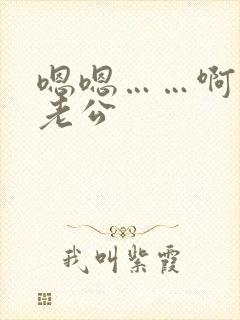 嗯嗯……啊
老公
我叫紫霞